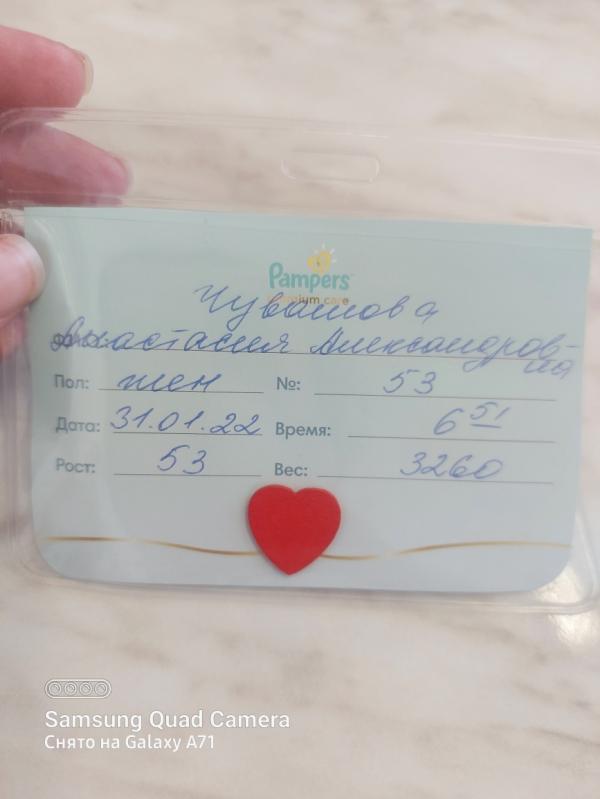 Pampers
premium care
Чувашова
Ф.И.О. Анастасия Александров-
на
Пол: жен №: 53
Дата: 31.01.22 Время: 6 51
Рост: 53 Вес: 3260
Samsung Quad Camera
Снято на Galaxy A71